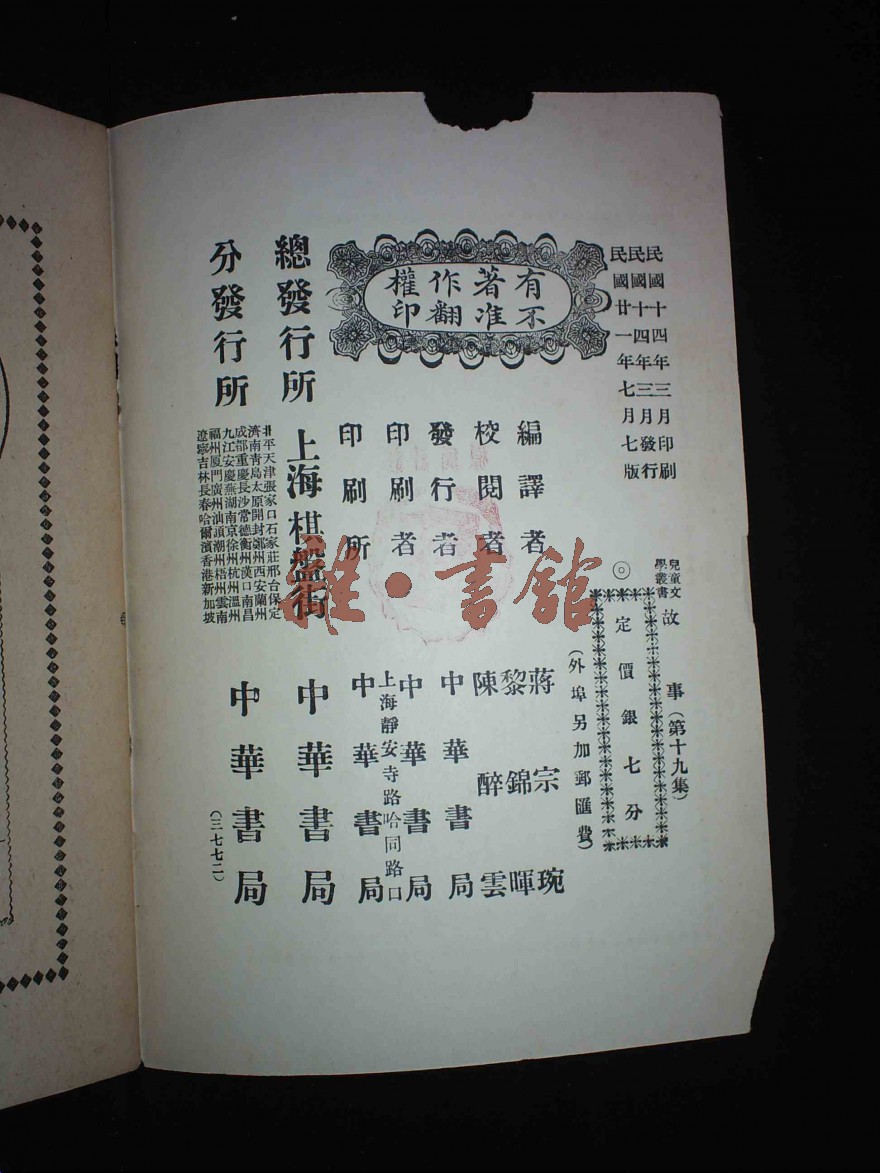 民國十四年三月印刷
民國十四年三月發行
民國廿一年七月七版
兒童文
學叢書
故事（第十九集）
◎
定價銀七分
（外埠另加郵匯費）
有著作權
不准翻印
編譯者
蔣宗琬
校閱者
黎錦暉
陳醉雲
發行者
中華書局
印刷者
中華書局
印刷所
上海靜安寺路哈同路口
中華書局
總發行所
上海棋盤街
中華書局
分發行所
北平天津張家口石家莊邢台保定
濟南青島太原開封鄭州西安蘭州
成都重慶長沙常德衡州漢口南昌
九江安慶蕪湖南京徐州杭州溫州
福州厦門廣州汕頭潮州梧州雲南
遼寧吉林長春哈爾濱香港新加坡
中華書局
（三七七二）
雜·書館